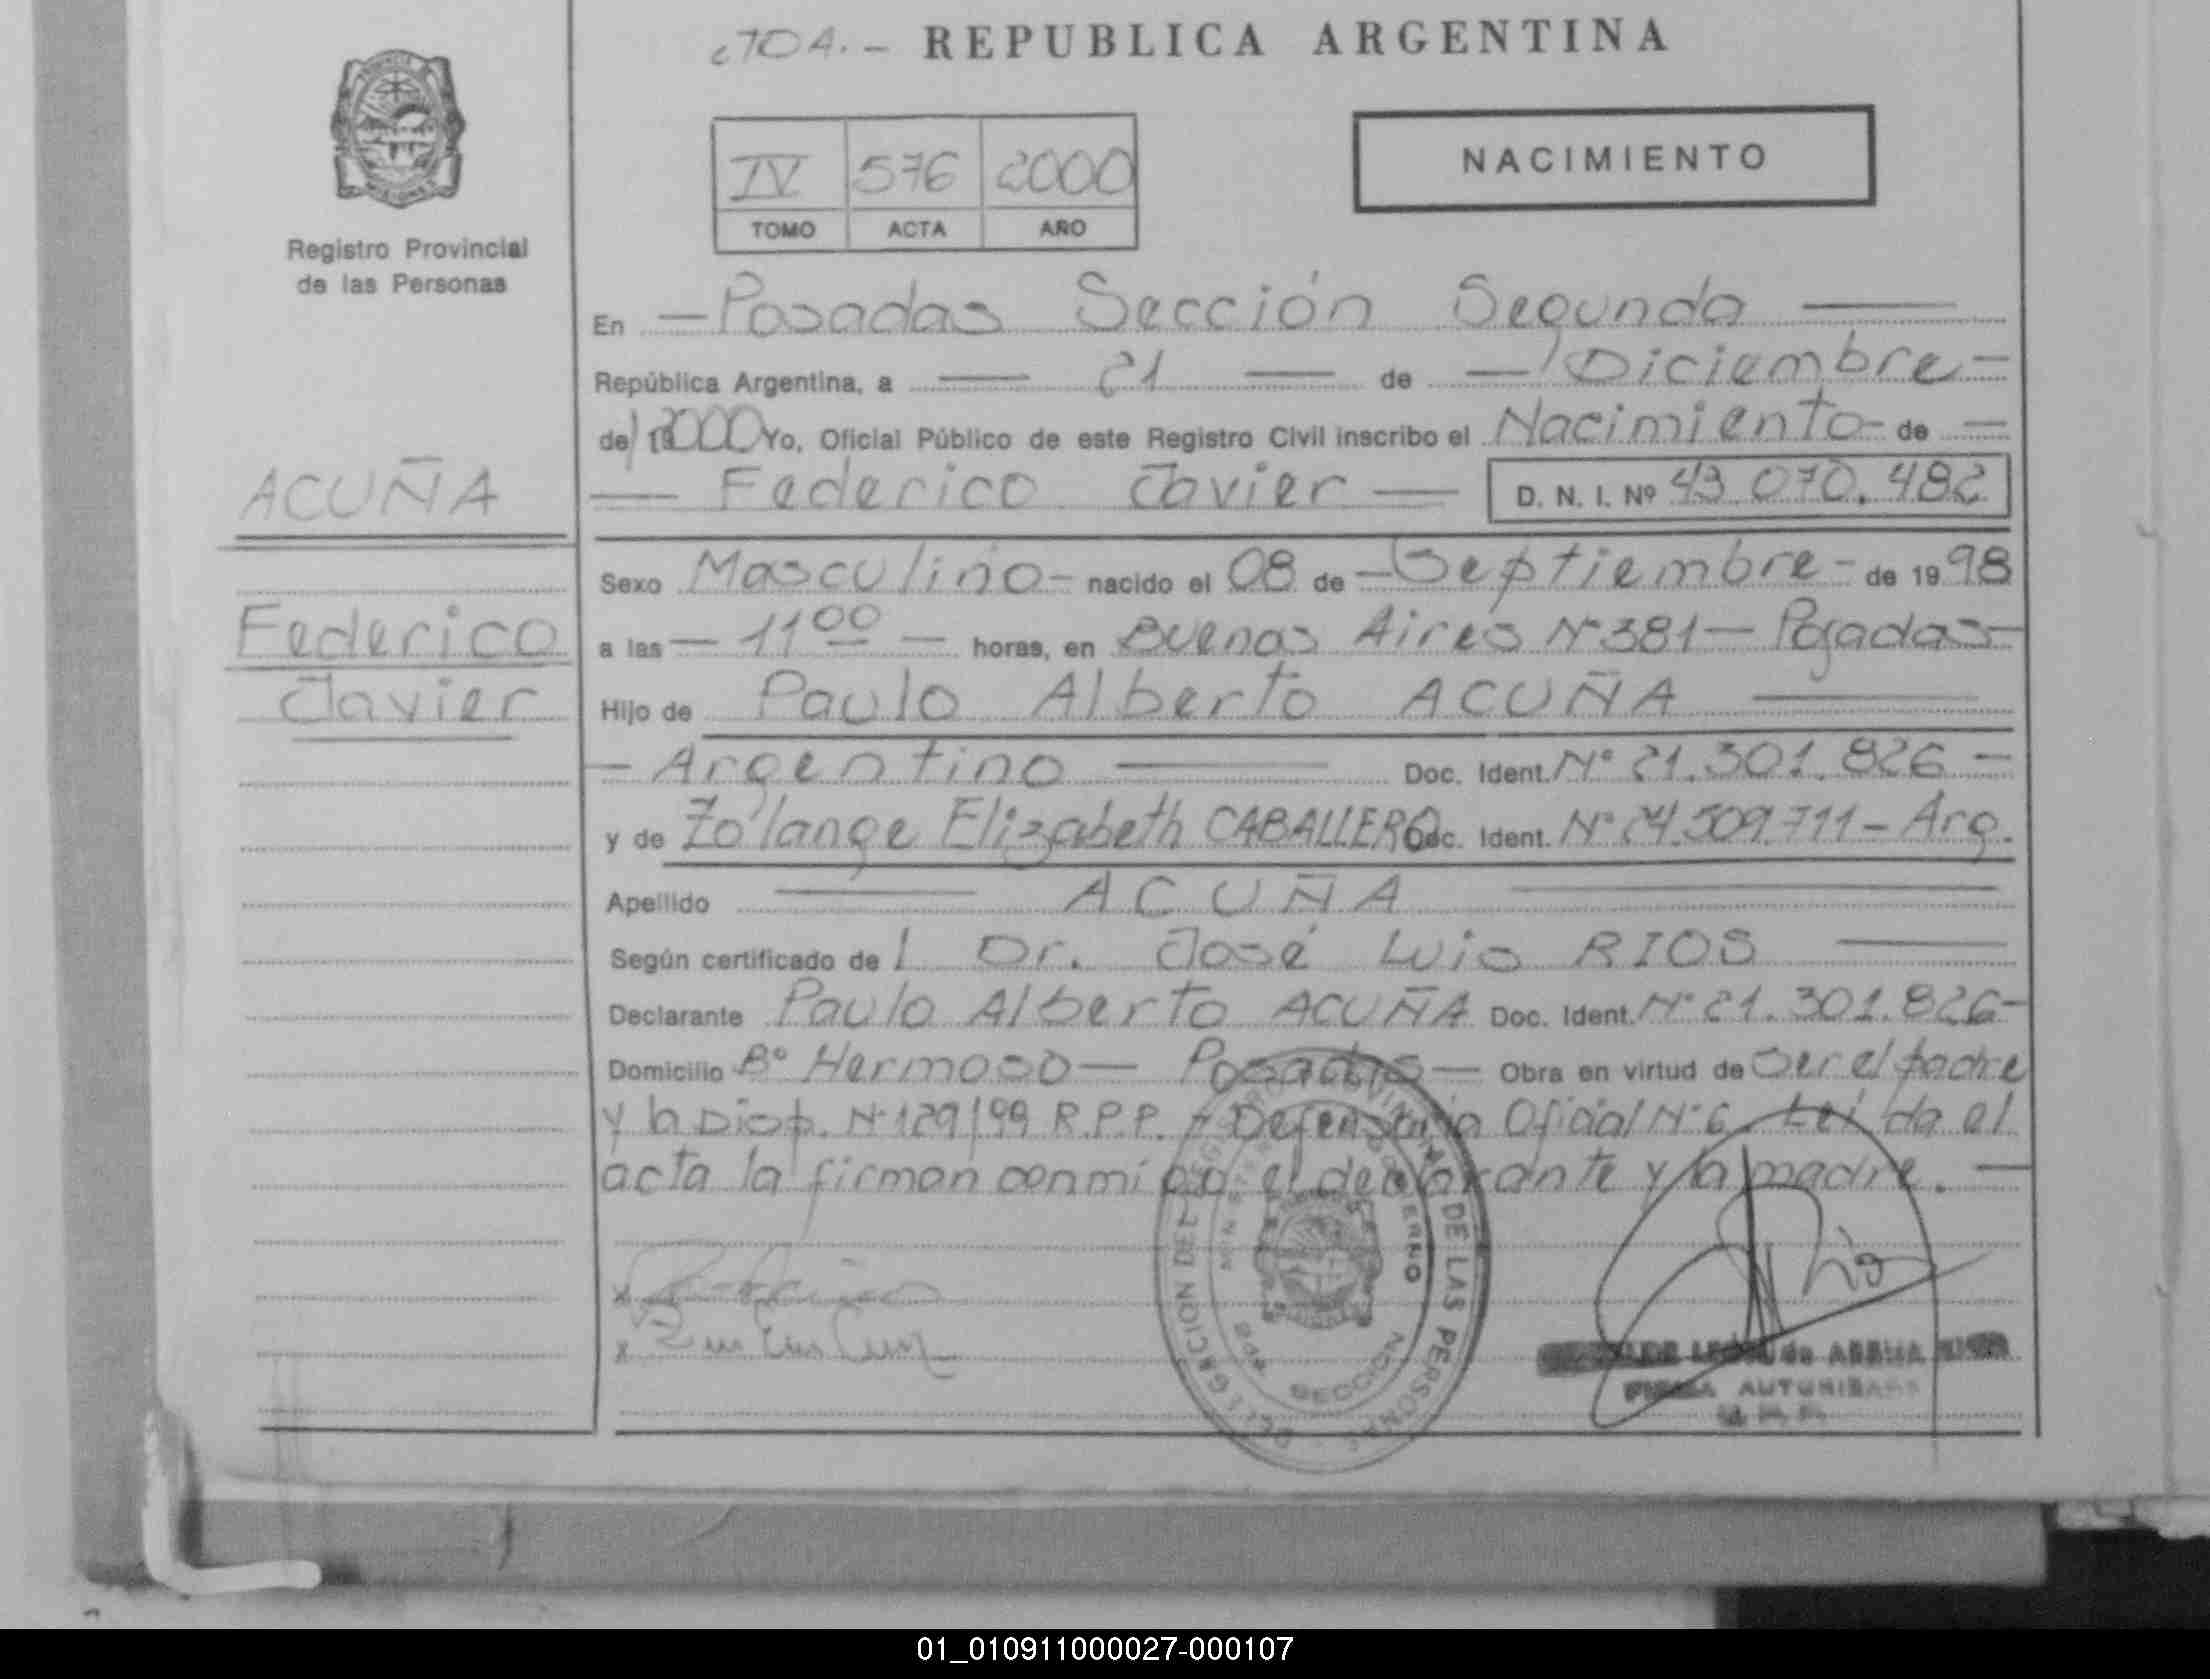 2704.- REPUBLICA ARGENTINA
IV 576 2000
TOMO ACTA AÑO
NACIMIENTO
Registro Provincial
de las Personas
En — Posadas Sección Segunda —
República Argentina, a — 21 — de — Diciembre —
de 2000 Yo, Oficial Público de este Registro Civil inscribo el Nacimiento - de —
— Federico Javier — D. N. I. Nº 43.070.482
ACUÑA
Federico
Javier
Sexo Masculino - nacido el 08 de - Septiembre - de 1998
a las — 11 00 — horas, en Buenos Aires Nº 381 — Posadas —
Hijo de Paulo Alberto ACUÑA —
— Argentino — Doc. Ident. Nº 21.301.826 —
y de Zo'lange Elizabeth CABALLERO Doc. Ident. Nº 24.509.711 - Arg.
Apellido — ACUÑA —
Según certificado de l Dr. José Luis RIOS —
Declarante Paulo Alberto ACUÑA Doc. Ident. Nº 21.301.826 -
Domicilio Bº Hermoso — Posadas — Obra en virtud de Ser el padre
y la Disp. Nº 129/99 R.P.P. y Defensoría Oficial Nº 6. Leída el
acta la firman conmigo el declarante y la madre. —
DELEGACION DEL REGISTRO PROVINCIAL DE LAS PERSONAS
MINISTERIO DE GOBIERNO
2da SECCION
de LEÓN de
FIRMA AUTORIZADA
01_010911000027-000107